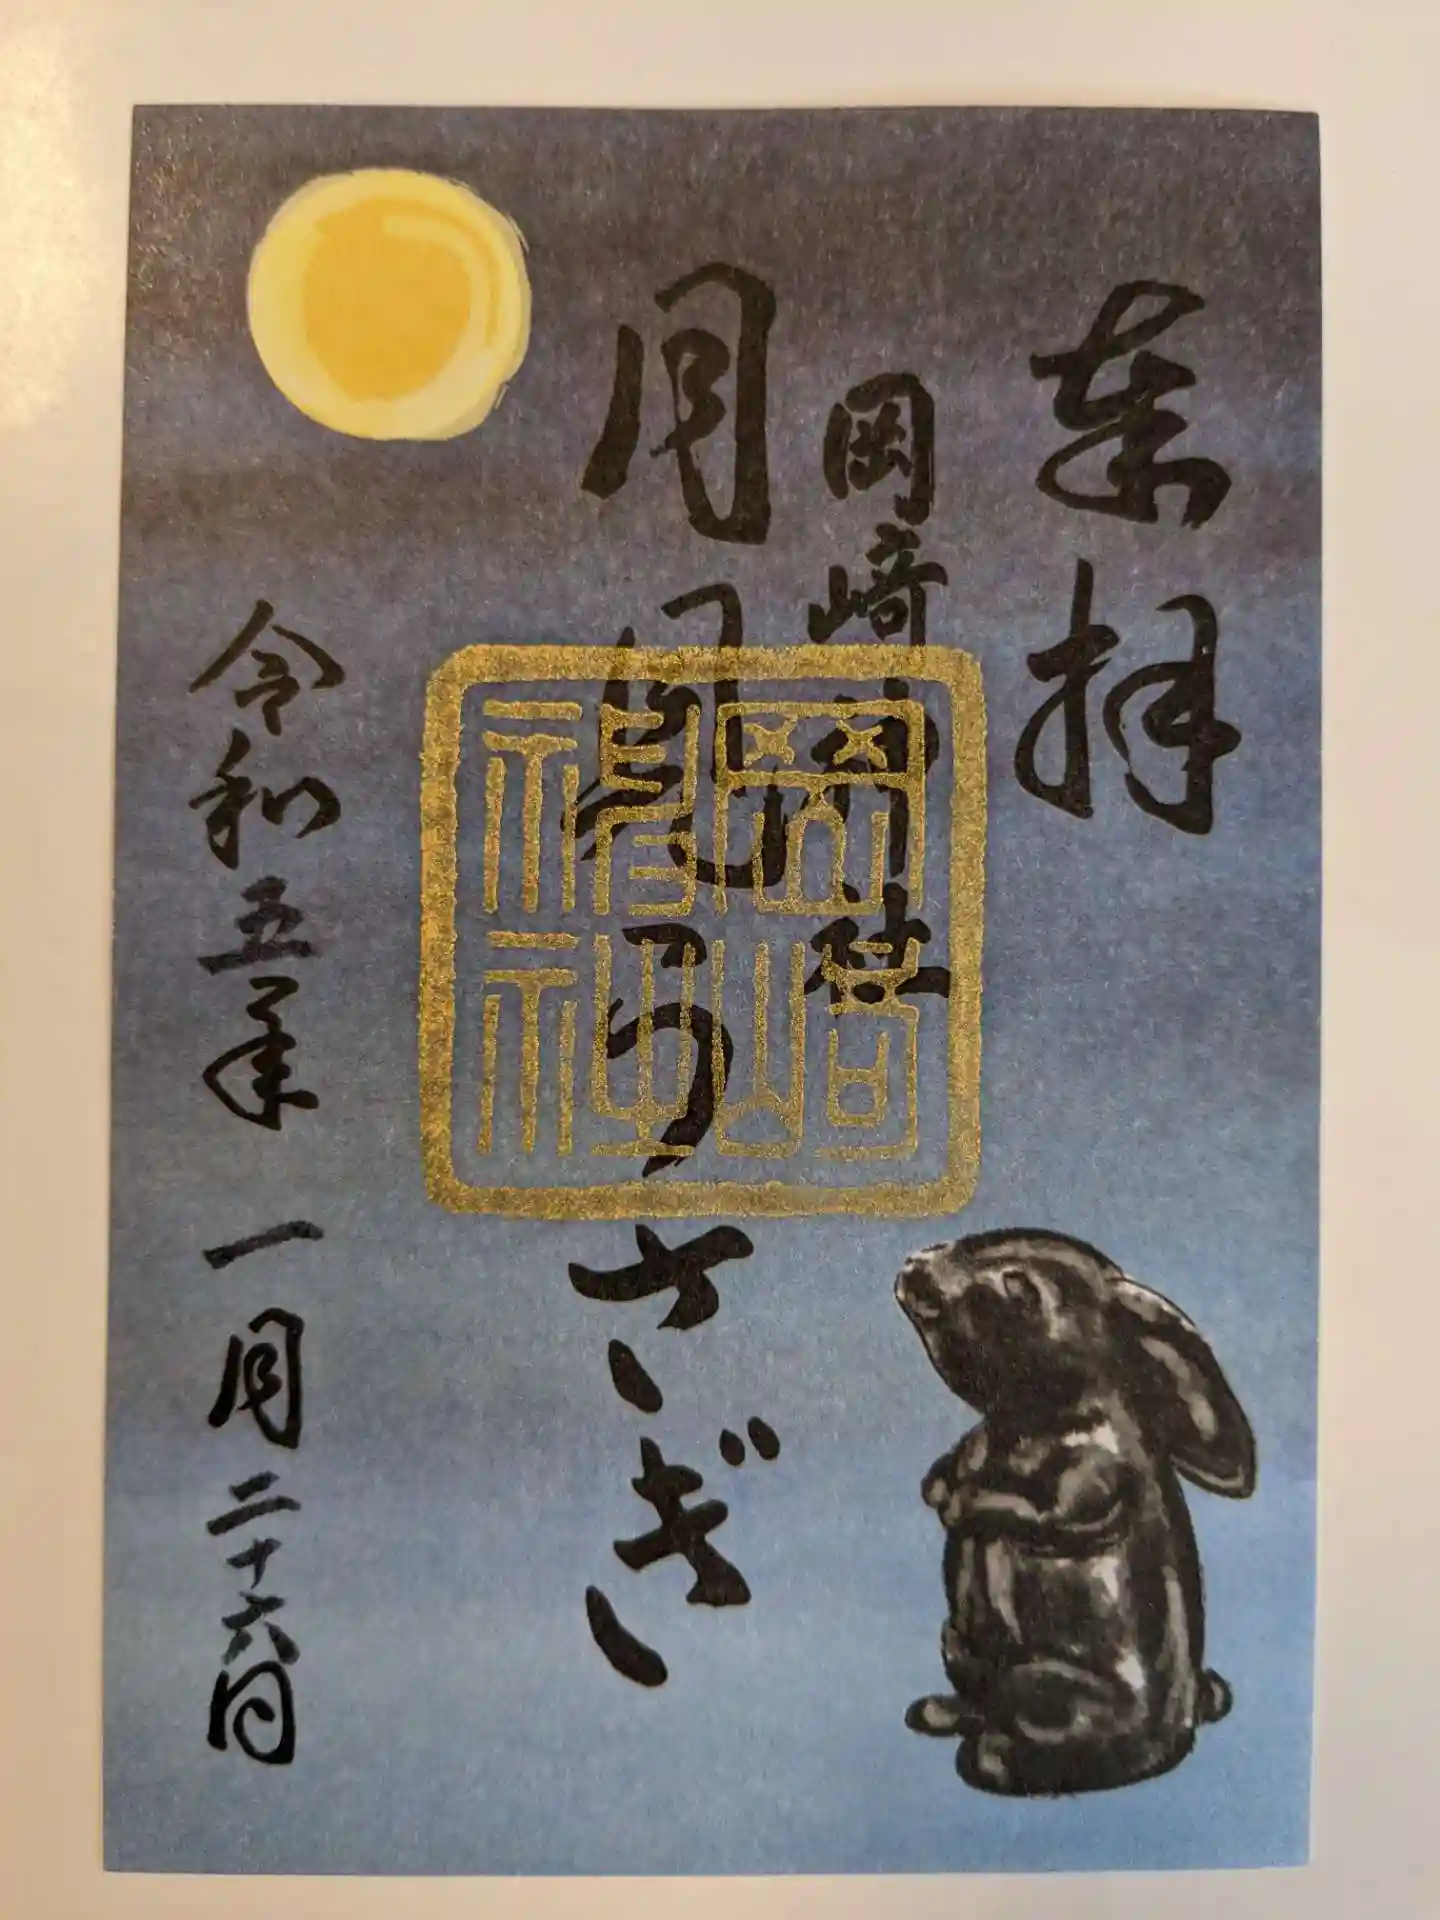 奉拝
岡崎神社
月見うさぎ
令和五年一月二十六日
岡崎神社